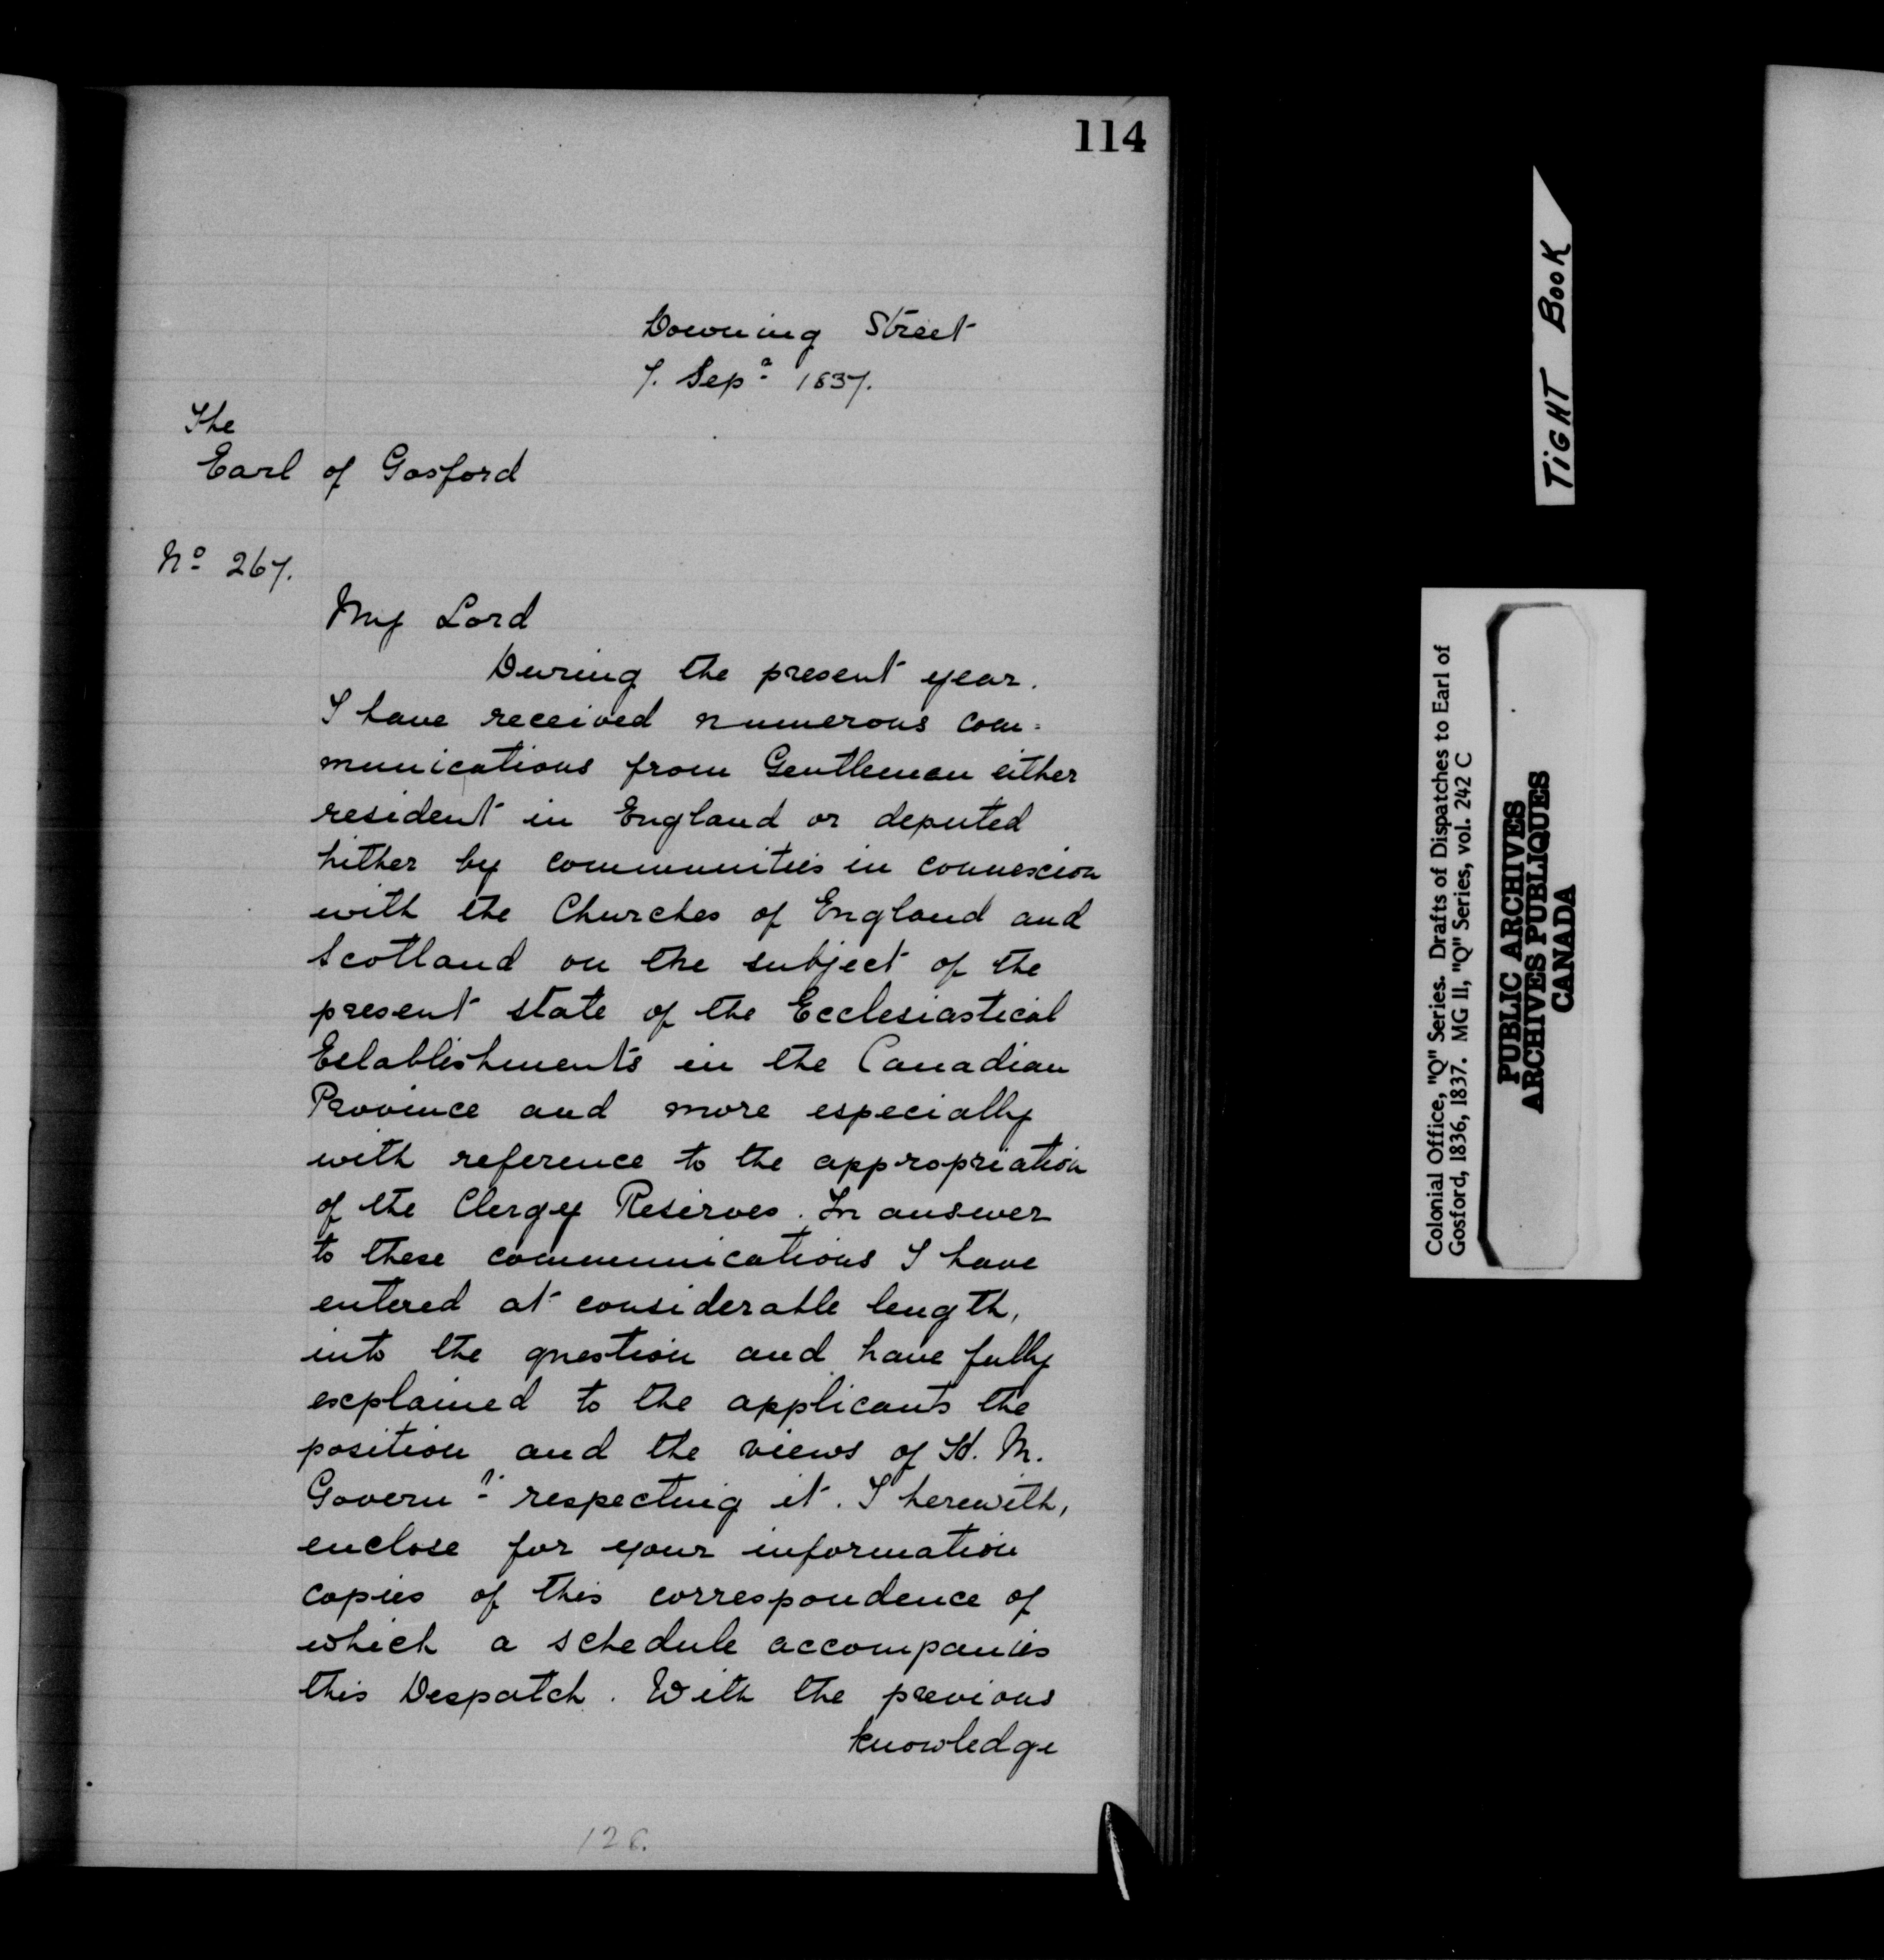 114
Downing Street
7. Sepr 1837.
The
Earl of Gosford
No 267.
My Lord
During the present year.
I have received numerous com=
munications from Gentleman either
resident in England or deputed
hither by communities in connexion
with the Churches of England and
Scotland on the subject of the
present state of the Ecclesiastical
Establishments in the Canadian
Province and more especially
with reference to the appropriation
of the Clergy Reserves. In answer
to these communications I have
entered at considerable length,
into the question and have fully
explained to the applicants the
position and the views of H. M.
Governt respecting it. I herewith,
enclose for your information
copies of this correspondence of
which a schedule accompanies
this Despatch. With the previous
knowledge
TiGHT BOOK
Colonial Office, "Q" Series. Drafts of Dispatches to Earl of
Gosford, 1836, 1837. MG 11, "Q" Series, vol. 242 C
PUBLIC ARCHIVES
ARCHIVES PUBLIQUES
CANADA